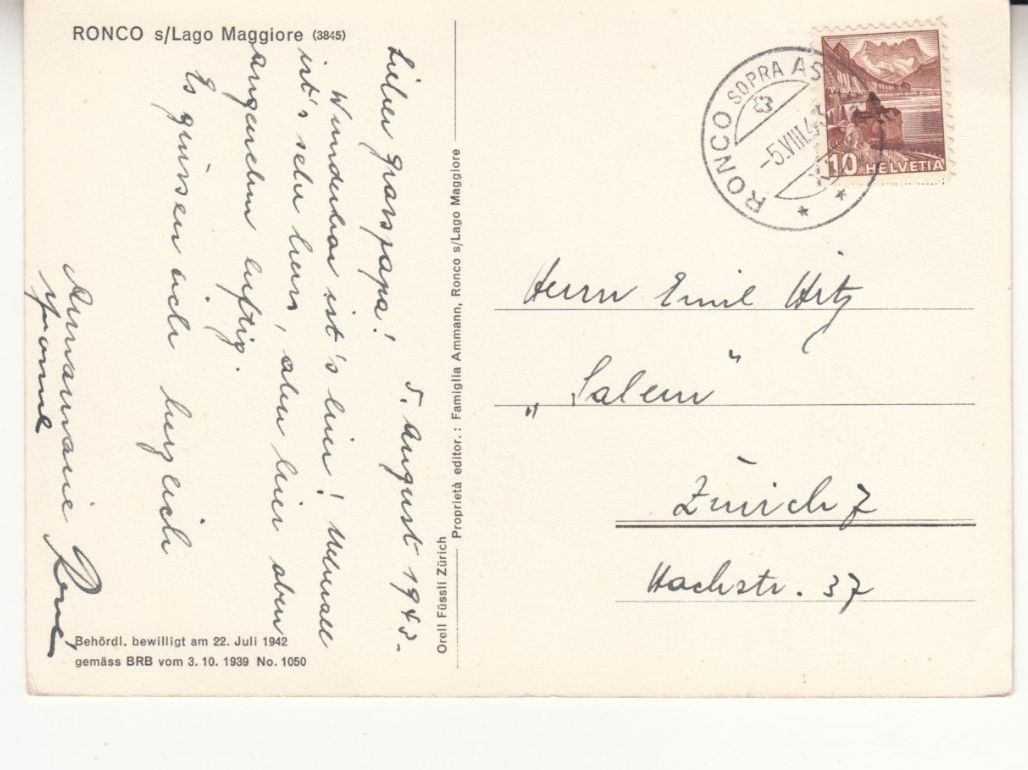 RONCO s/Lago Maggiore (3845)
Lieber Grosspapa!
5. August 1943.
Wunderbar ist's hier! Überall
ist's sehr heiss, aber hier oben
angenehm luftig.
Es grüssen dich herzlich
Annamarie René
Yvonne
Behördl. bewilligt am 22. Juli 1942
gemäss BRB vom 3. 10. 1939 No. 1050
Orell Füssli Zürich
Proprietà editor.: Famiglia Ammann, Ronco s/Lago Maggiore
RONCO SOPRA AS
-5.VIII.43
10 HELVETIA
Herrn Emil Hitz
„Salem"
Zürich 7
Hochstr. 37